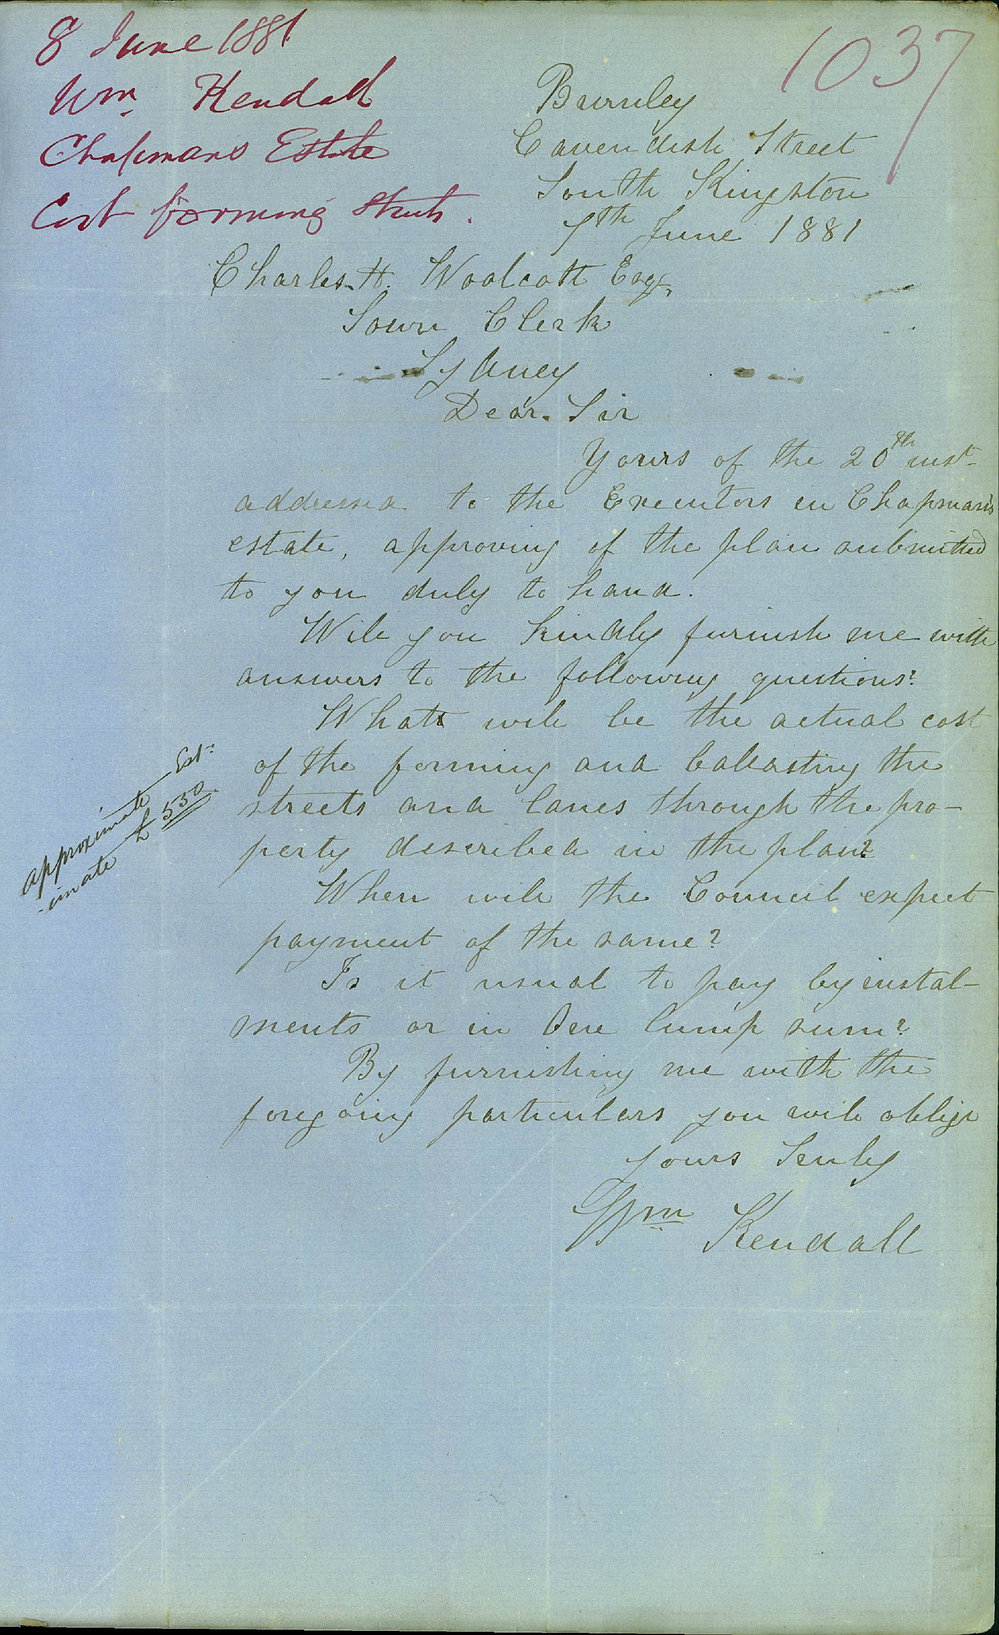 8 June 1881
Wm. Kendall
Chapmans Estate
Cost forming Streets.
1037
Burnley
Cavendish Street
South Kingston
7th June 1881
Charles. H. Woolcott Esqr.
Town Clerk
Sydney
Dear. Sir
Yours of the 20th inst.
addressed to the Executors in Chapman's
estate, approving of the plan submitted
to you duly to hand.
Will you kindly furnish me with
answers to the following questions?
What will be the actual cost
of the forming and ballasting the
streets and lanes through the pro-
perty described in the plan?
When will the Council expect
payment of the same?
Is it usual to pay by instal-
ments or in One lump sum?
By furnishing me with the
foregoing particulars you will oblige
yours Truly
Wm Kendall
approximate Est:
-imate £550.